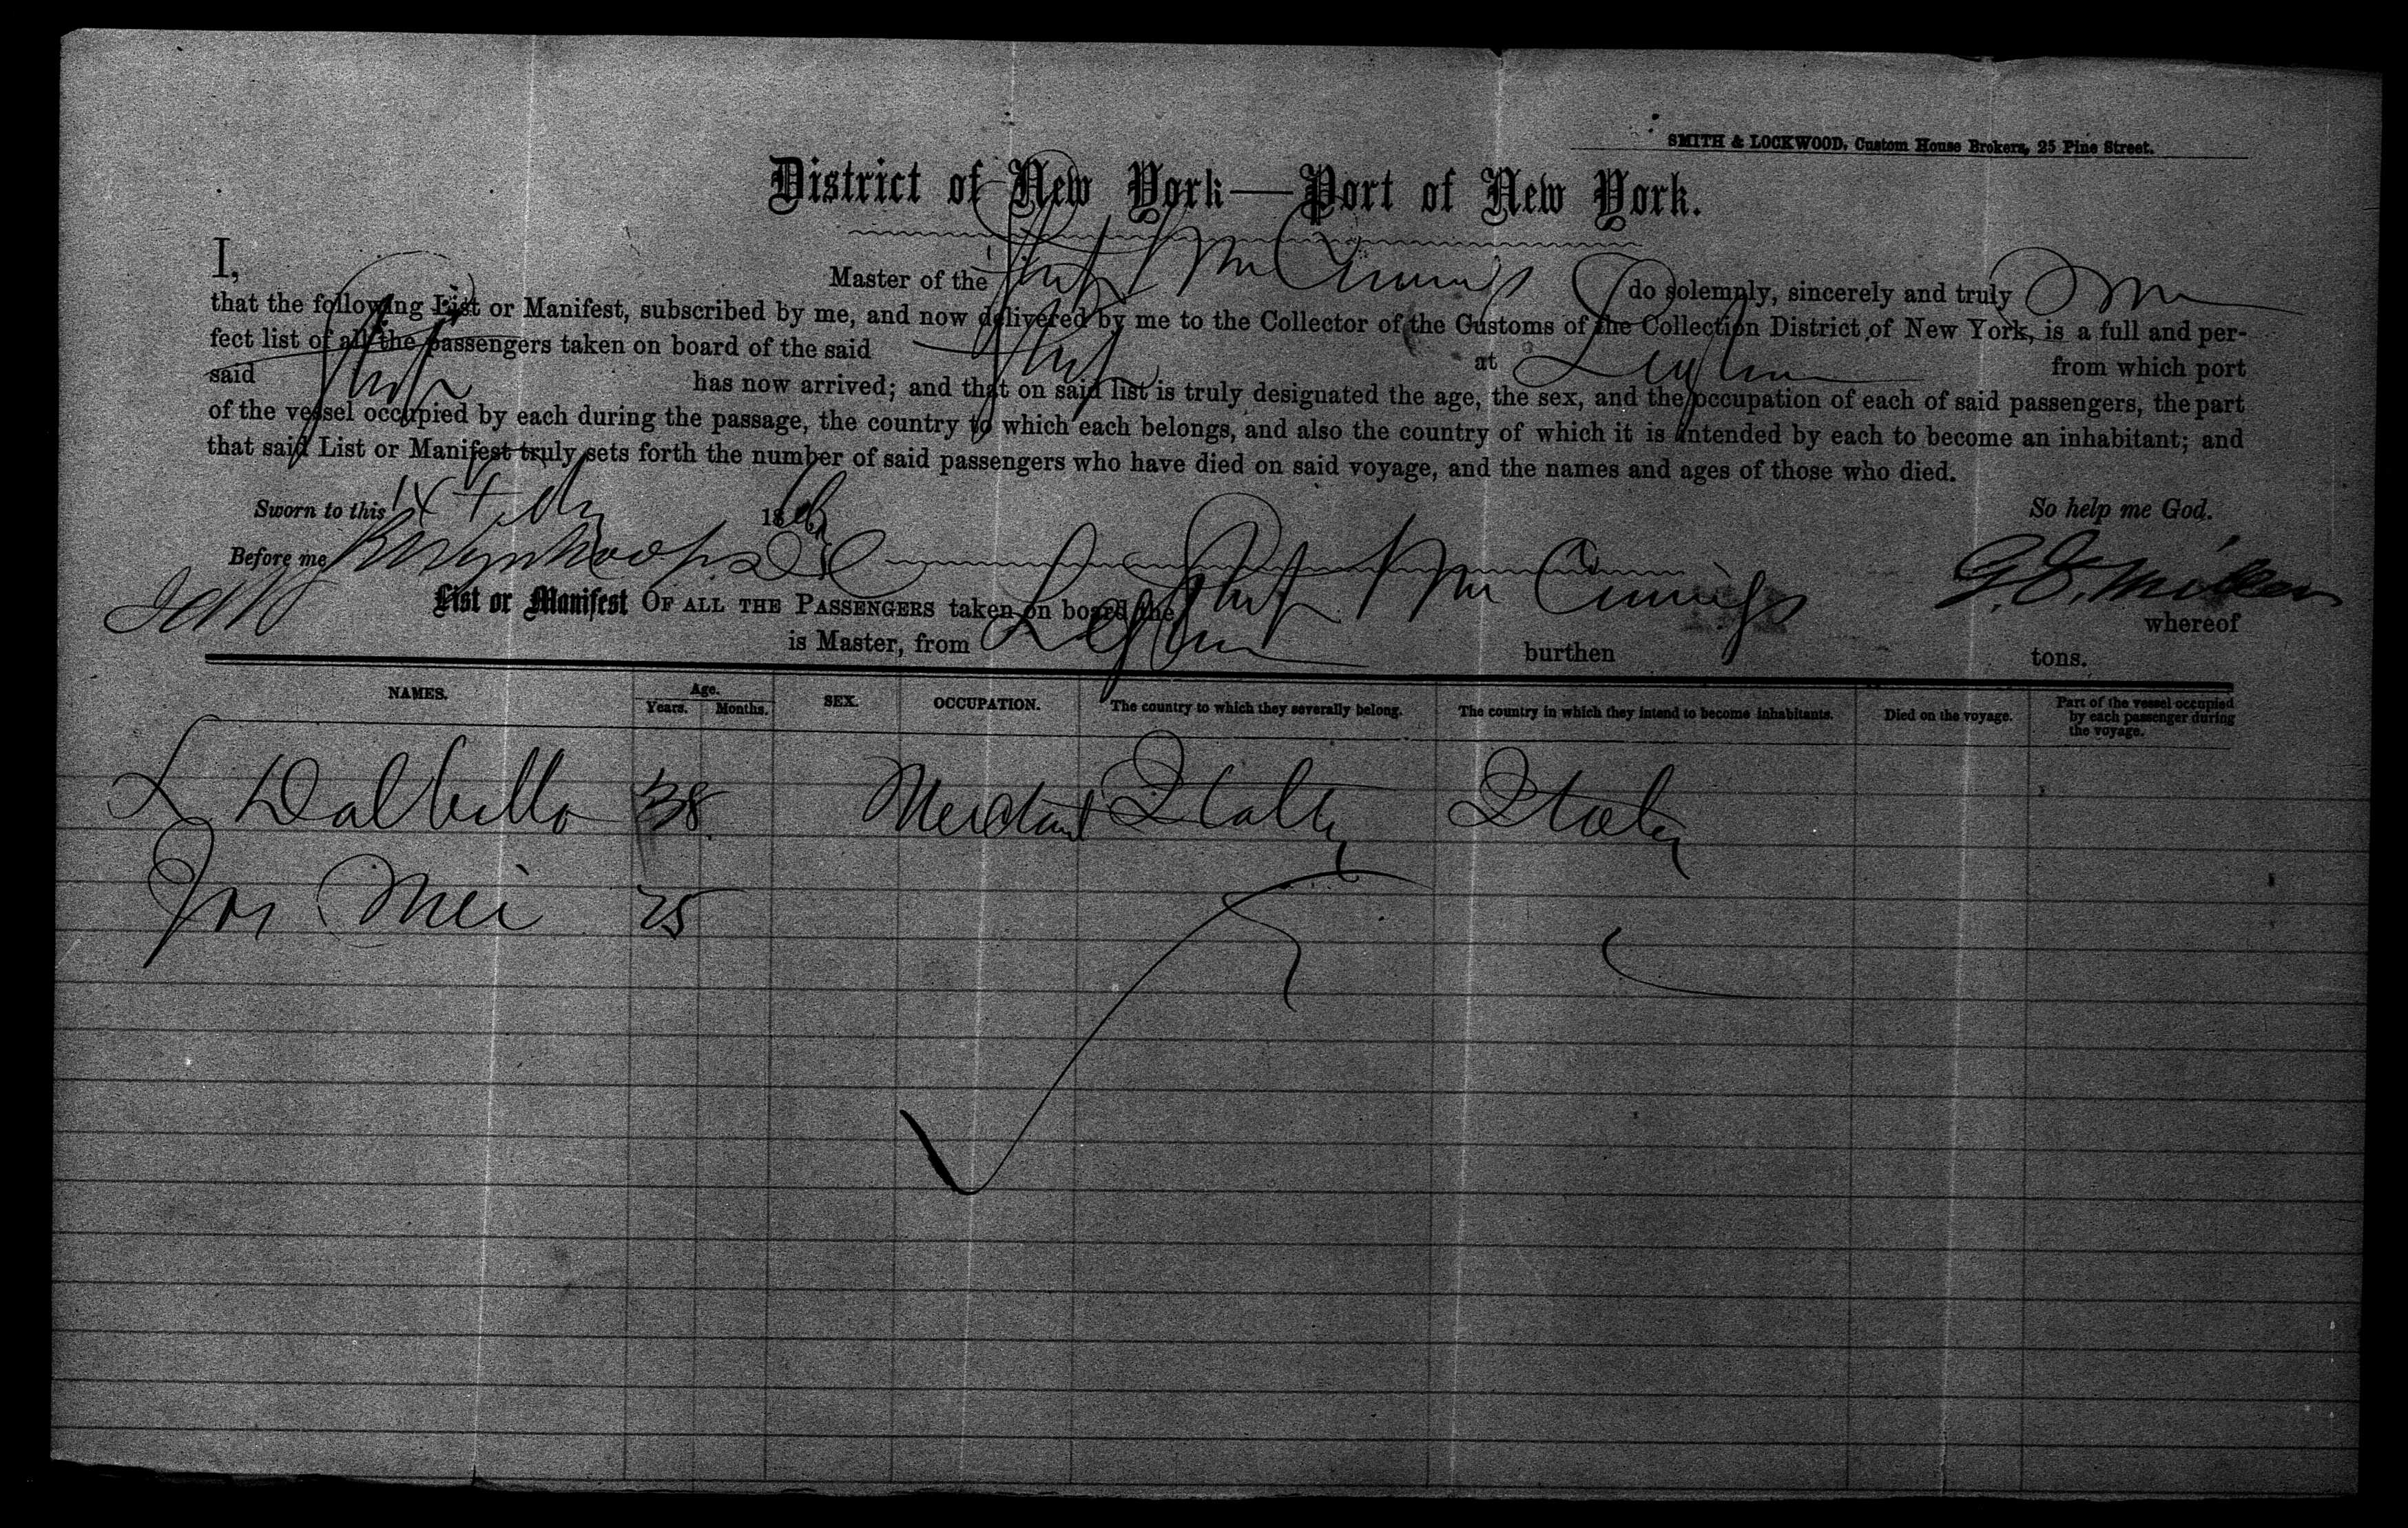 SMITH & LOCKWOOD, Custom House Brokers, 25 Pine Street.
District of New York—Port of New York.
I, Master of the Ship Wm Cummings do solemnly, sincerely and truly
that the following List or Manifest, subscribed by me, and now delivered by me to the Collector of the Customs of the Collection District of New York, is a full and per-
fect list of all the passengers taken on board of the said Ship at Leghorn from which port
said Ship has now arrived; and that on said list is truly designated the age, the sex, and the occupation of each of said passengers, the part
of the vessel occupied by each during the passage, the country to which each belongs, and also the country of which it is intended by each to become an inhabitant; and
that said List or Manifest truly sets forth the number of said passengers who have died on said voyage, and the names and ages of those who died.
Sworn to this 186 So help me God.
Before me
List or Manifest OF ALL THE PASSENGERS taken on board the Ship Wm Cummings whereof
is Master, from Leghorn burthen tons.
NAMES. Age. Years. Months. SEX. OCCUPATION. The country to which they severally belong. The country in which they intend to become inhabitants. Died on the voyage. Part of the vessel occupied by each passenger during the voyage.
L Dalbello 38 Merchant Italy Italy
Jos Mei 25